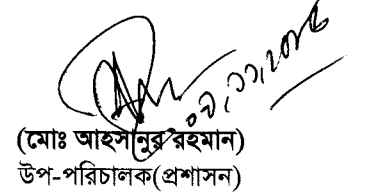 (মোঃ আহসানুর রহমান)
উপ-পরিচালক(প্রশাসন)